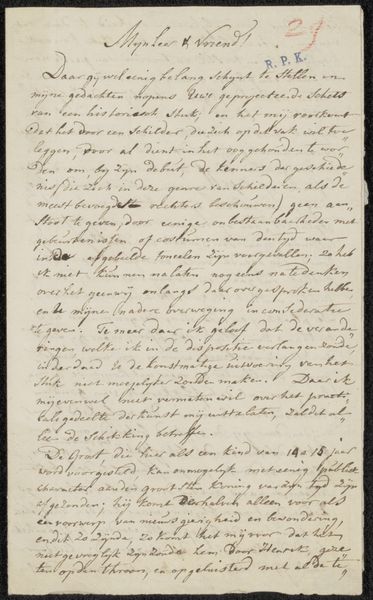 Mijn Heer & Vriend!
2
R. P. K.
Daar gij wel eenig belang Schynt te Stellen in
mijne gedachten nopens Uwe geprojecteerde Schets
van een historiesch Stuk; en het mij voorkomt
dat het door een Schilder, die zich op dat vak wil toe
leggen, voor al dient in het oog gehouden te wor¬
den om, by zijn debut, de kenners der geschiede
nis, (die zich in deze genre van Schilderen, als de
meest bevoegdste rechters beschouwen) geen aan
stoot te geven, door eenige onbestaanbaarheden met
gebeurtenissen of costumen van den tyd waar
in de afgebeelde tonelen zijn voorgevallen; zo heb
ik met kunnen nalaten nog eens na te denken
over het geen wij onlangs daar over gesproken hebben
en U mijne nadere overweging in consideratie
te geven. Te meer daar ik geloof dat de verande
ringen welke ik in de dispositie verlangen zoude,
inderdaad U de konstmatige uitvoering van het
Stuk niet moejelyker zouden maken. Daar ik
mij evenwel niet vermeten wil over het pract
ale gedeelte der kunst mij uit te laten, zal dit al
leen de Schikking betreffen.
De Groot die hier als een kind van 14 a 15 jaar
word voorgesteld kan onmogelyk met eenig publiek
character aan den grootsten Koning van zijn tyd zijn
afgezonden; hij kome derhalven alleen voor als
een voorwerp van nieuwsgierigheid en bewondering,
en dit zo zijnde, zo komt het mij voor dat het
niet gevoeglyk zijn zoude hem door Henrik, geze
ten op den throon, en opgeluisterd met al de te¯